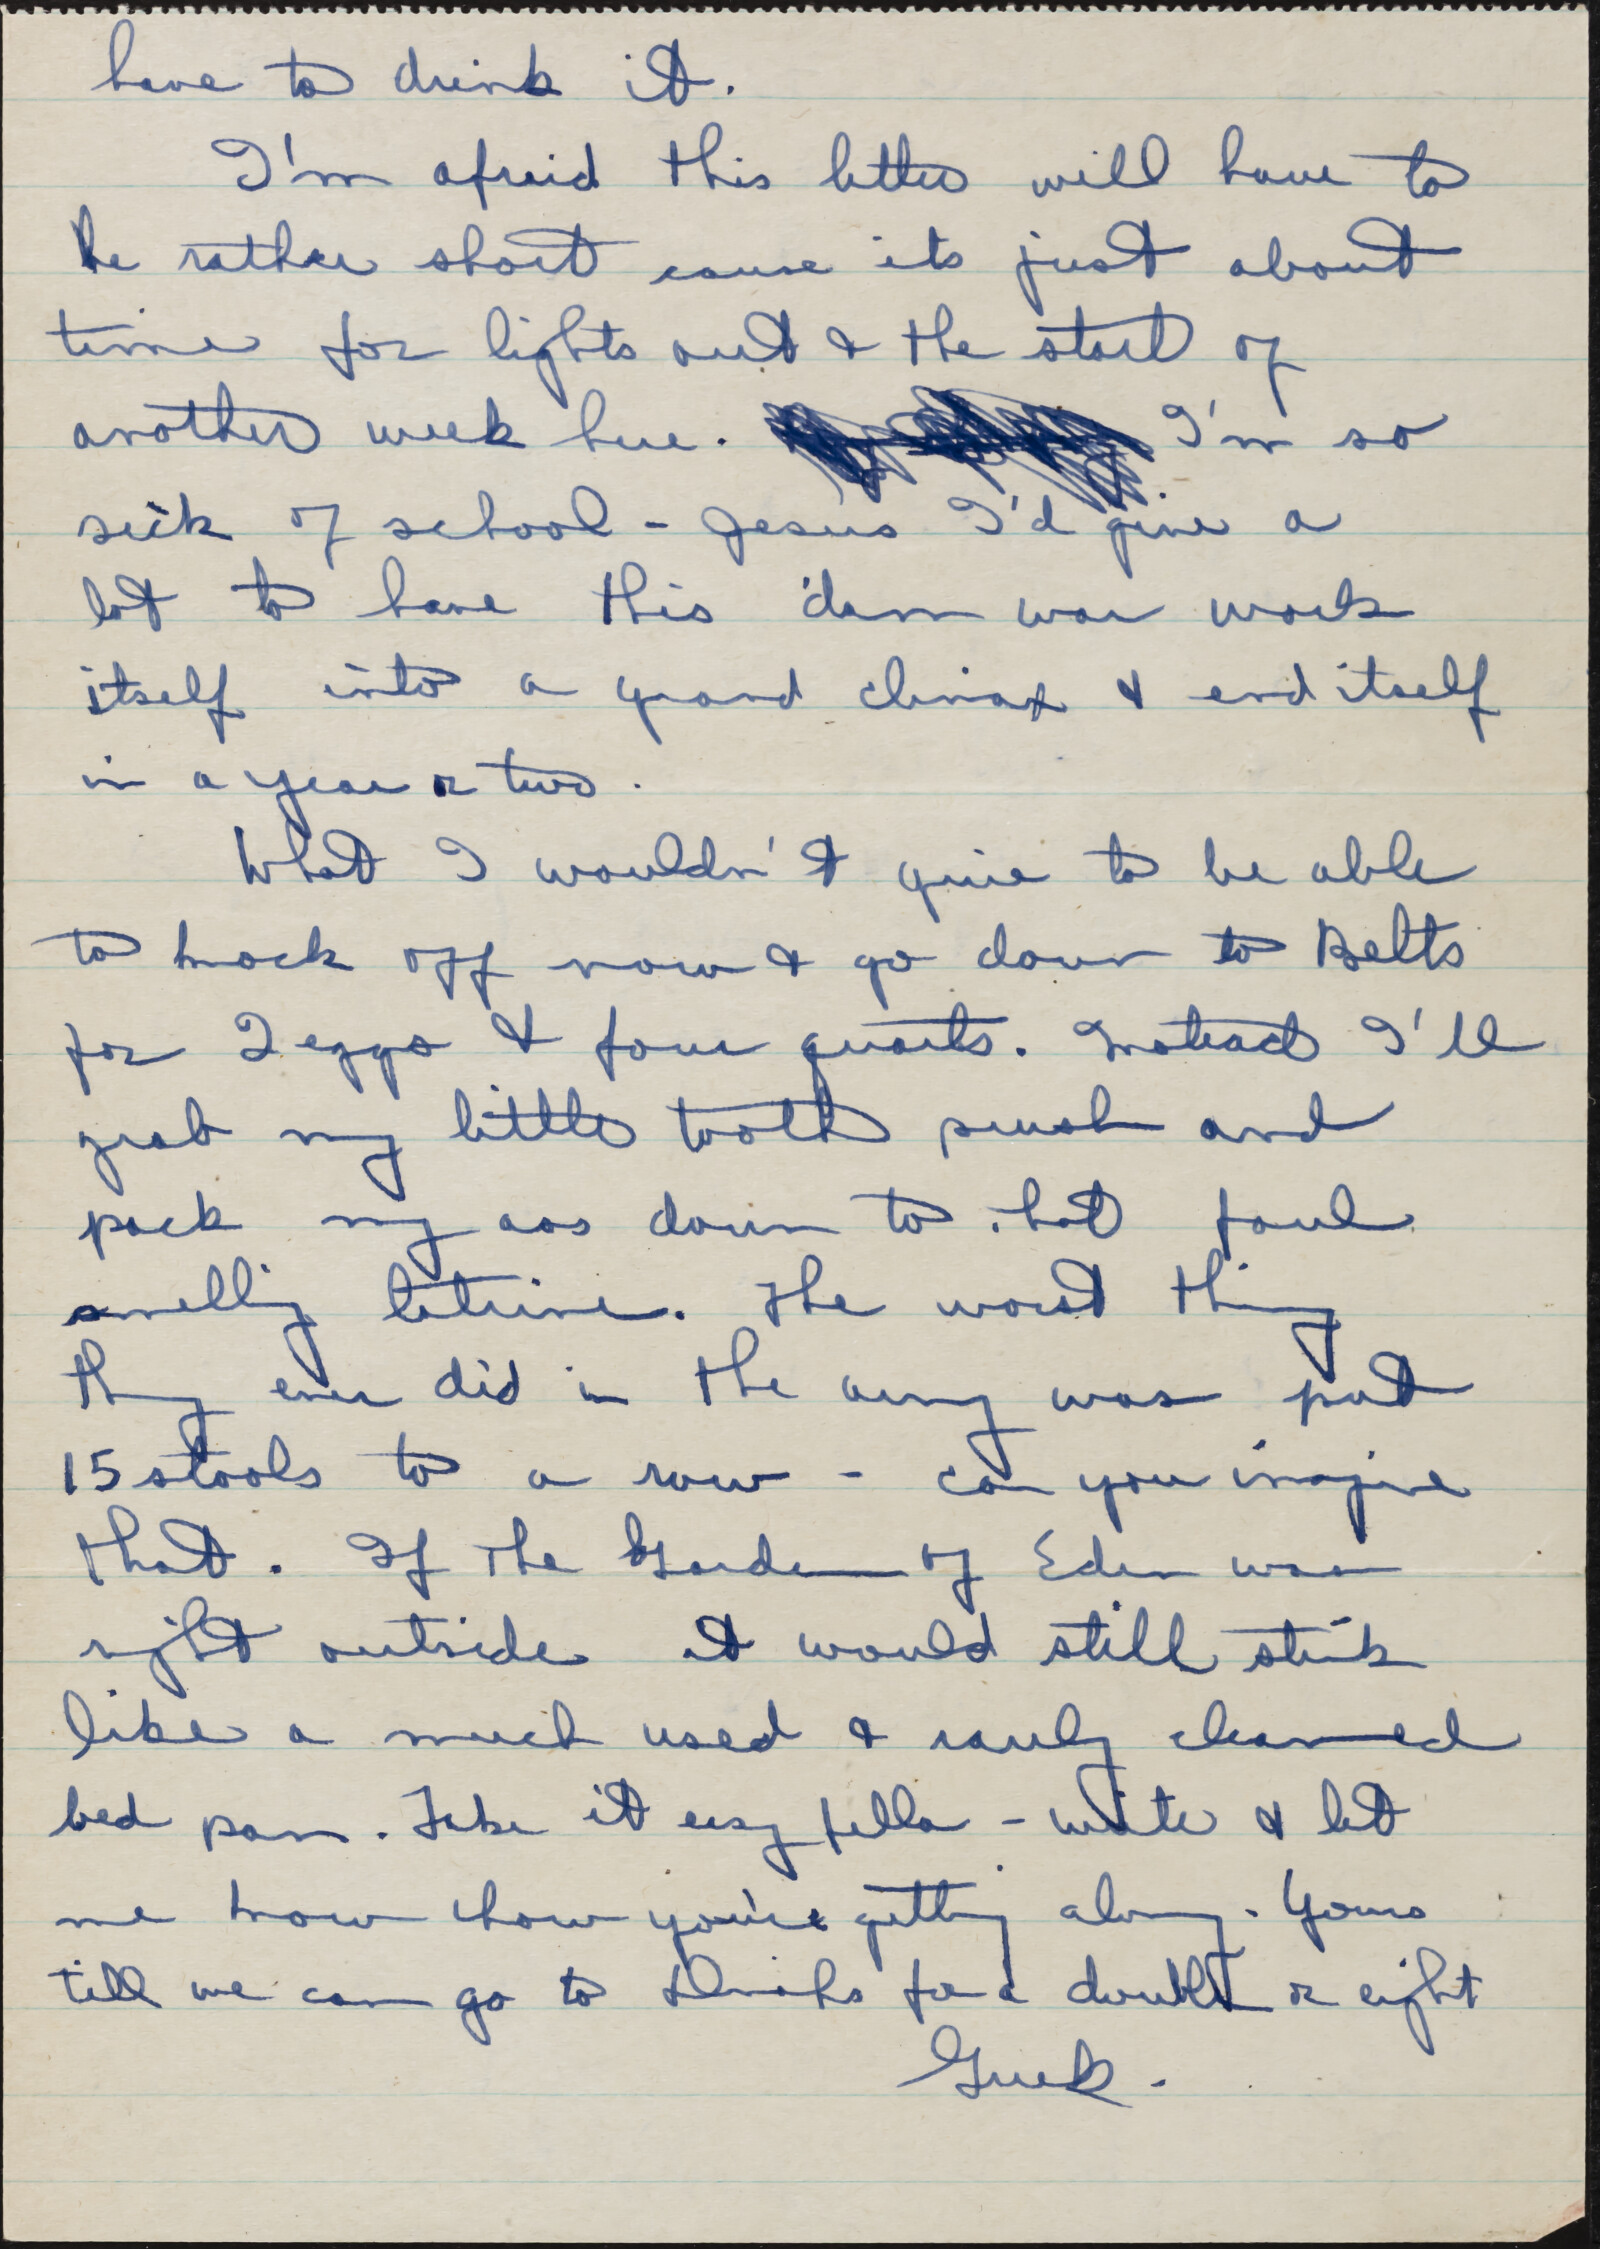 have to drink it.
I'm afraid this letter will have to
be rather short cause its just about
time for lights out & the start of
another week here. I'm so
sick of school - Jesus I'd give a
lot to have this damn war work
itself into a grand climax & end itself
in a year or two.
What I wouldn't give to be able
to knock off now & go down to Belts
for 2 eggs & four quarts. Instead I'll
grab my little tooth brush and
pack my ass down to that foul
smelling latrine. The worst thing
they ever did in the army was put
15 stools to a row - can you imagine
that. If the Garden of Eden was
right outside it would still stink
like a much used & rarely cleaned
bed pan. Take it easy fella - write & let
me know how you're getting along. Yours
till we can go to for a double or eight
Greek.